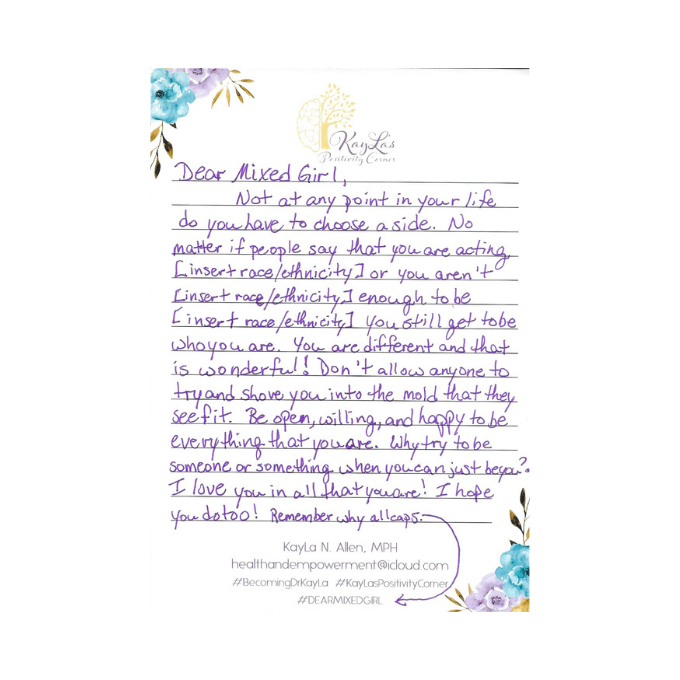 KayLa's
Positivity Corner
Dear Mixed Girl,
Not at any point in your life
do you have to choose a side. No
matter if people say that you are acting
[insert race/ethnicity] or you aren't
[insert race/ethnicity] enough to be
[insert race/ethnicity] you still get to be
who you are. You are different and that
is wonderful! Don't allow anyone to
try and shove you into the mold that they
see fit. Be open, willing, and happy to be
everything that you are. Why try to be
someone or something when you can just be you?
I love you in all that you are! I hope
you do too! Remember why all caps.
KayLa N. Allen, MPH
healthandempowerment@icloud.com
#BecomingDrKayLa #KayLasPositivityCorner
#DEARMIXEDGIRL